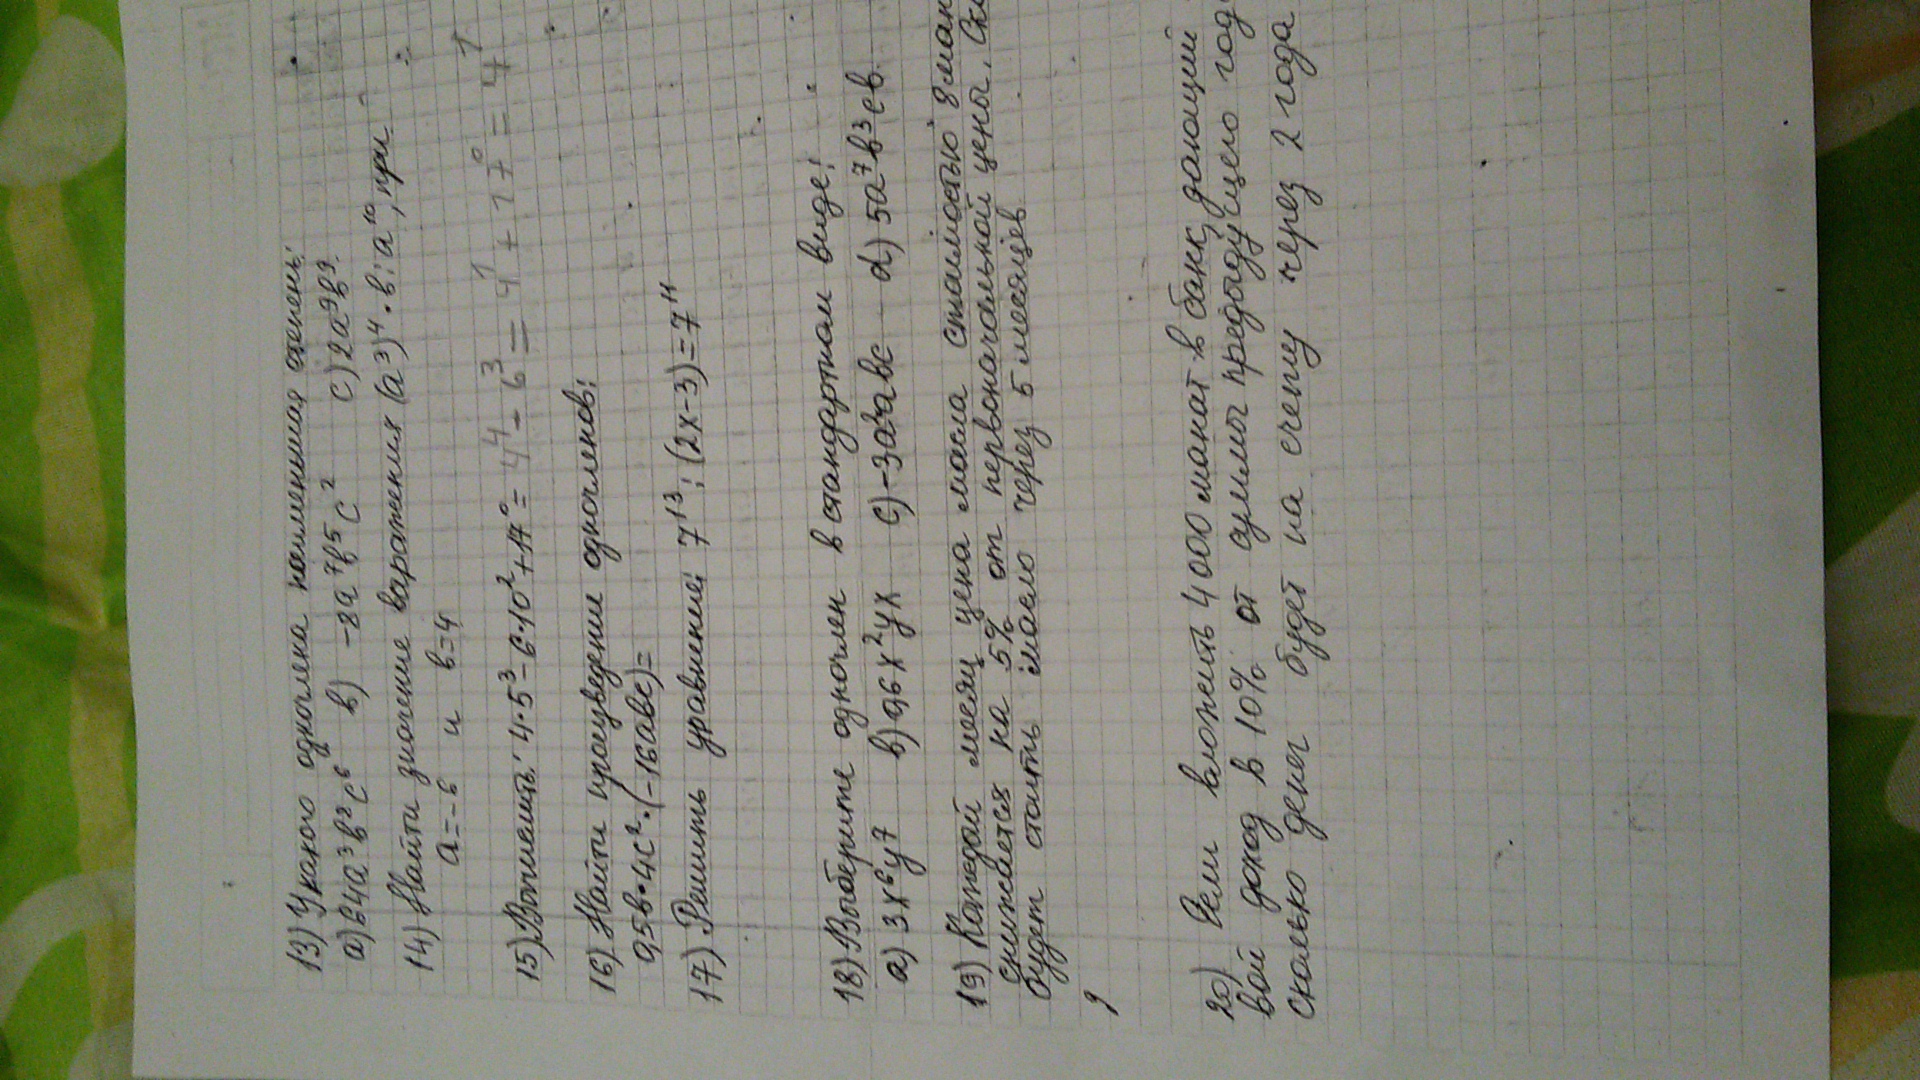 13) У какого одночлена наименьшая степень:
a) 64a³b²c⁶ b) -8a⁷b⁵c² c) 2a⁹b⁹.
14) Найти значение выражения (a³)⁴·b:a¹⁰, при
a=-6 и b=4
15) Вычислить: 4·5³-6·10²+17⁰= 4⁴-6³= 4¹+17⁰=4¹
16) Найти произведение одночленов:
0,5b·4c²·(-16abc)=
17) Решить уравнение: 7¹³:(2x-3)=7¹¹
18) Выберите одночлен в стандартном виде:
a) 3x⁶y⁷ b) 0,6x²yx c) -3a²abc d) 5a⁷b³cb.
19) Каждый месяц цена масла стоимостью 8 ман
снижается на 5% от первоначальной цены. Ско
будет стоить масло через 5 месяцев
?
20) Если вложить 4000 манат в банк, дающий
вой доход в 10% от суммы предыдущего год
сколько денег будет на счету через 2 года